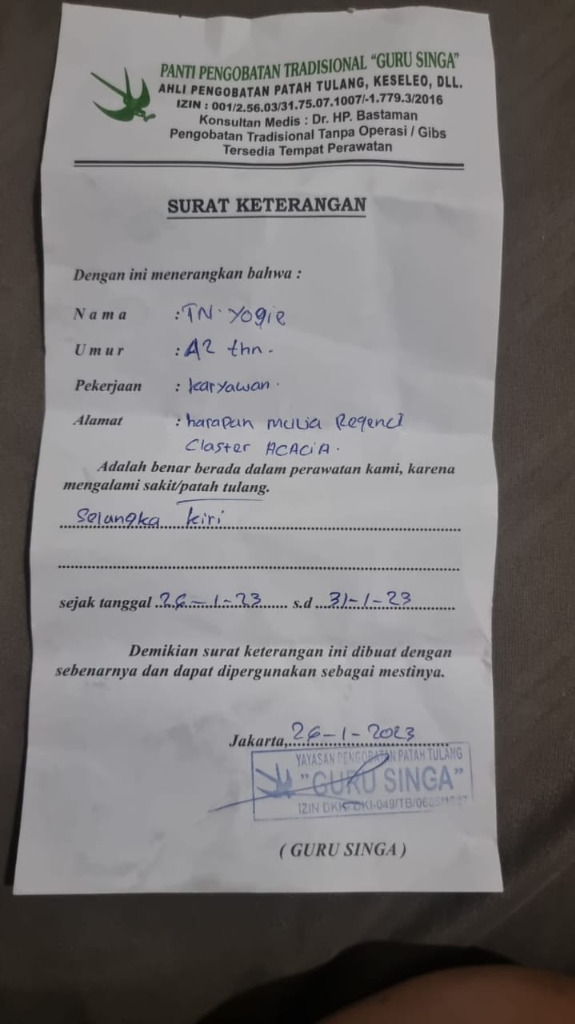 PANTI PENGOBATAN TRADISIONAL "GURU SINGA"
AHLI PENGOBATAN PATAH TULANG, KESELEO, DLL.
IZIN : 001/2.56.03/31.75.07.1007/-1.779.3/2016
Konsultan Medis : Dr. HP. Bastaman
Pengobatan Tradisional Tanpa Operasi / Gibs
Tersedia Tempat Perawatan
SURAT KETERANGAN
Dengan ini menerangkan bahwa :
Nama : TN. Yogie
Umur : 42 thn.
Pekerjaan : karyawan.
Alamat : harapan mulia Regenci
Claster ACACIA.
Adalah benar berada dalam perawatan kami, karena
mengalami sakit/patah tulang.
Selangka kiri
sejak tanggal 26-1-23 s.d 31-1-23
Demikian surat keterangan ini dibuat dengan
sebenarnya dan dapat dipergunakan sebagai mestinya.
Jakarta, 26-1-2023
YAYASAN PENGOBATAN PATAH TULANG
"GURU SINGA"
IZIN DKK DKI-049/TB/
( GURU SINGA )